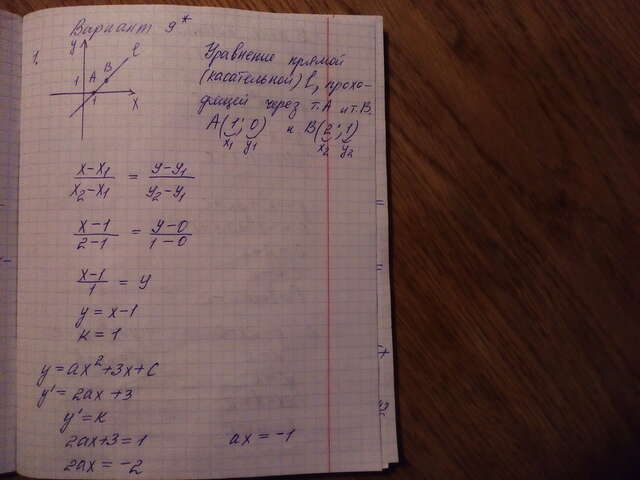 Вариант 9*
1.
y
B
l
1
A
1
x
Уравнение прямой
(касательной) l, прохо-
дящей через т.А и т.В.
A(1; 0) и B(2; 1)
x₁ y₁ x₂ y₂
(x-x₁)/(x₂-x₁) = (y-y₁)/(y₂-y₁)
(x-1)/(2-1) = (y-0)/(1-0)
(x-1)/1 = y
y = x-1
k = 1
y = ax²+3x+c
y' = 2ax+3
y' = k
2ax+3 = 1
ax = -1
2ax = -2